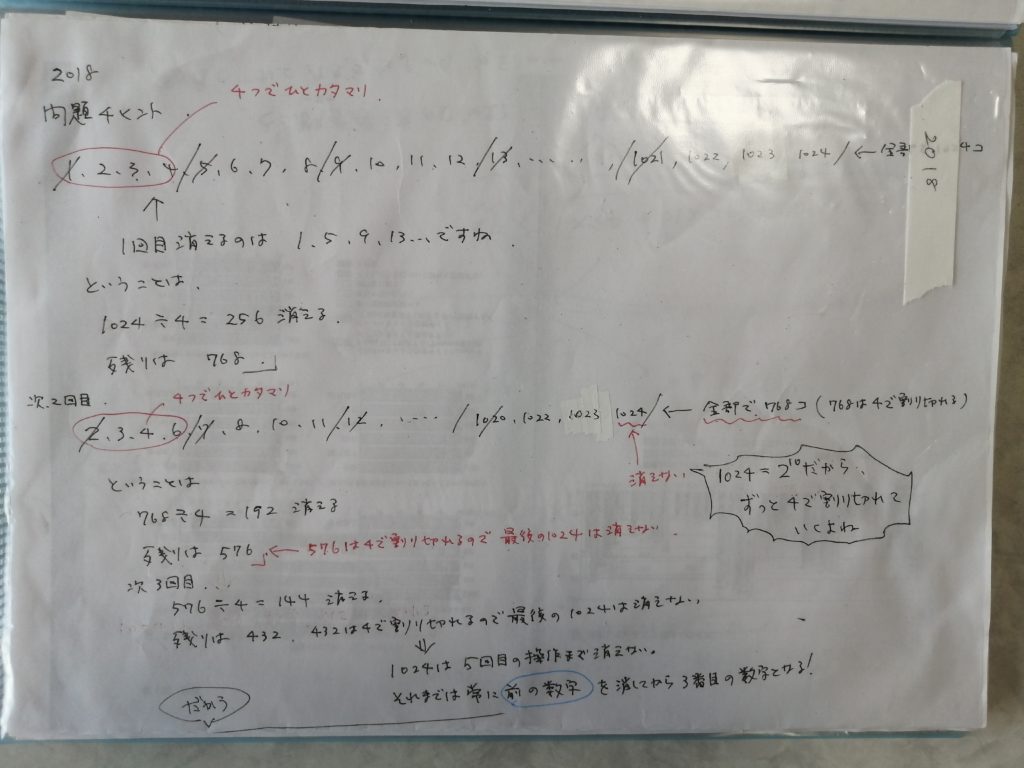 2018
問題4ヒント
4つでひとカタマリ.
1、2、3、4/5、6、7、8/9、10、11、12/13、…… , /1021, 1022, 1023 1024/ ← 全部 4コ
2018
↑
1回目消えるのは 1、5、9、13…ですね.
ということは、
1024÷4 = 256 消える.
残りは 768.
次、2回目. 4つでひとカタマリ
2、3、4、6/7、8、10、11/12、 …… /1020, 1022, 1023 1024/ ← 全部で 768コ (768は4で割り切れる)
消えない
ということは
768÷4 = 192 消える
1024=2¹⁰だから、
ずっと4で割り切れて
いくよね
残りは 576 ← 576は4で割り切れるので 最後の1024は消えない.
次 3回目...
576÷4 = 144 消える.
残りは 432. 432は4で割り切れるので最後の1024は消えない、
⇓
1024は 5回目の操作まで消えない。
それまでは常に前の数字を消してから3番目の数字となる!
だから